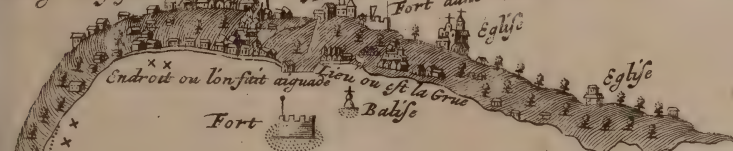 Fort dans
Eglise
Eglise
Endroit ou l'on fait aiguade
Lieu ou est la Grue
Fort
Balise